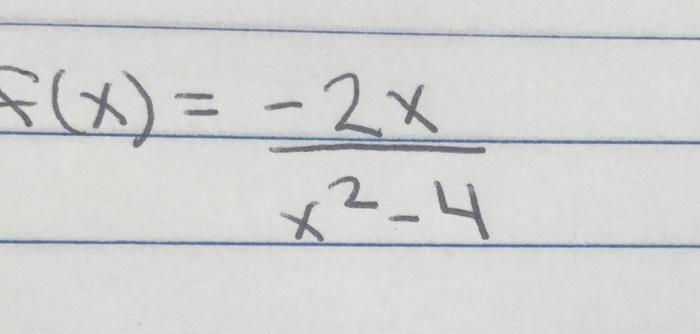 f(x) = -2x
x² - 4